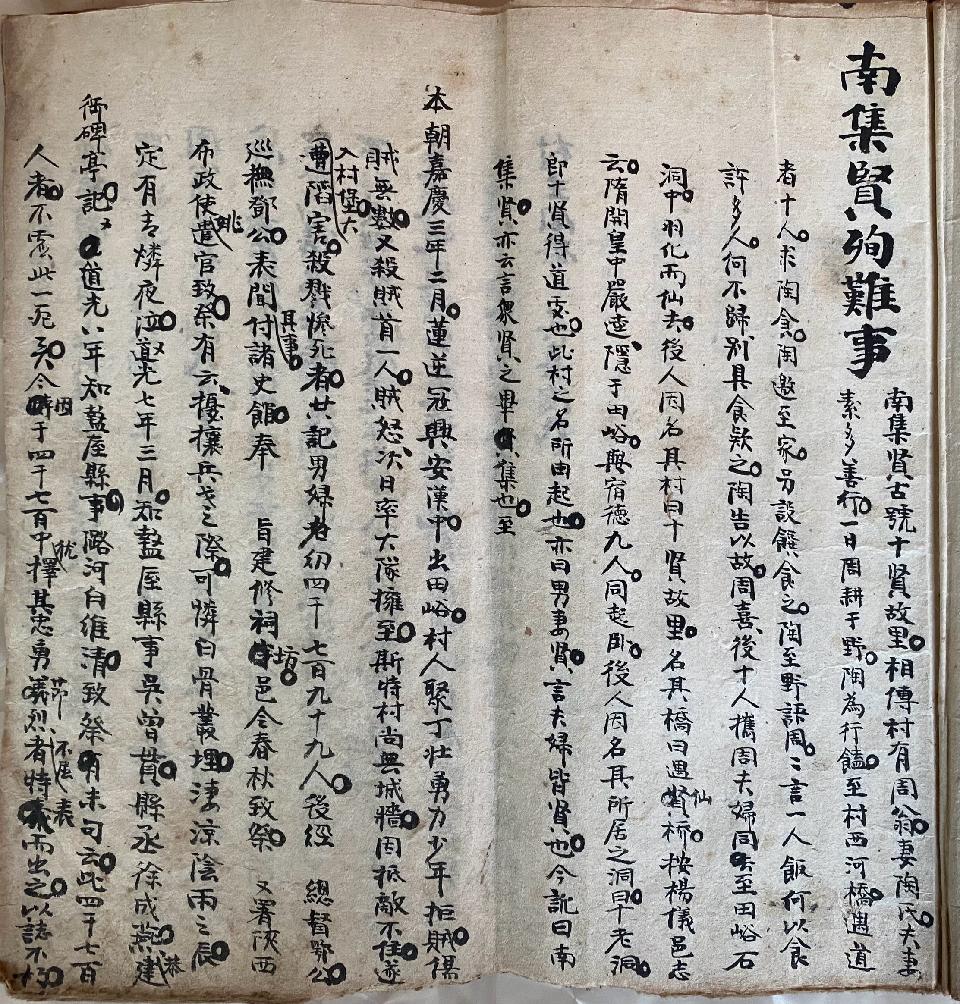 南集賢殉難事
南集賢古號十賢故里相傳村有周翁妻陶氏夫妻
素多善行一日周耕于野陶為行饁至村西河橋遇道
者十人求陶食陶邀至家另設饌食之陶至野語周〻言一人飯何以食
許多人何不歸別具食欵之陶告以故周喜後十人攜周夫婦同去至田峪石
洞中羽化而仙去後人因名其村曰十賢故里名其橋曰遇仙橋按楊儀邑志
云隋開皇中嚴達隱于田峪與宿德九人同起卧後人因名其所居之洞曰十老洞
即十賢得道處也此村之名所由起也亦曰男妻賢言夫婦皆賢也今訛曰南
集賢亦云言衆賢之畢集也至
本朝嘉慶三年二月蓮逆冠興安漢中出田峪村人聚丁壯勇力少年拒賊傷
賊無數又殺賊首一人賊怒次日率大隊擁至斯時村尚無城牆因抵敵不住遂
入村堡六
遭蹈害殺戮慘死者廿記男婦老幼四千七百九十九人後經 總督鄂公
巡撫鄧公表聞其事付諸史館奉 旨建修祠坊邑令春秋致祭 又署陝西
布政使兆遣官致祭有云擾攘兵戈之際可憐白骨叢埋淒涼陰雨之辰
定有青燐夜泣道光七年三月知盩厔縣事吳曾貫縣丞徐成恭建
御碑亭記之道光八年知盩厔縣事潞河白維清致祭有末句云此四千七百
人者不虛此一死矣今因于四千七百中猶擇其忠勇節烈不屈者特表而出之以誌不朽